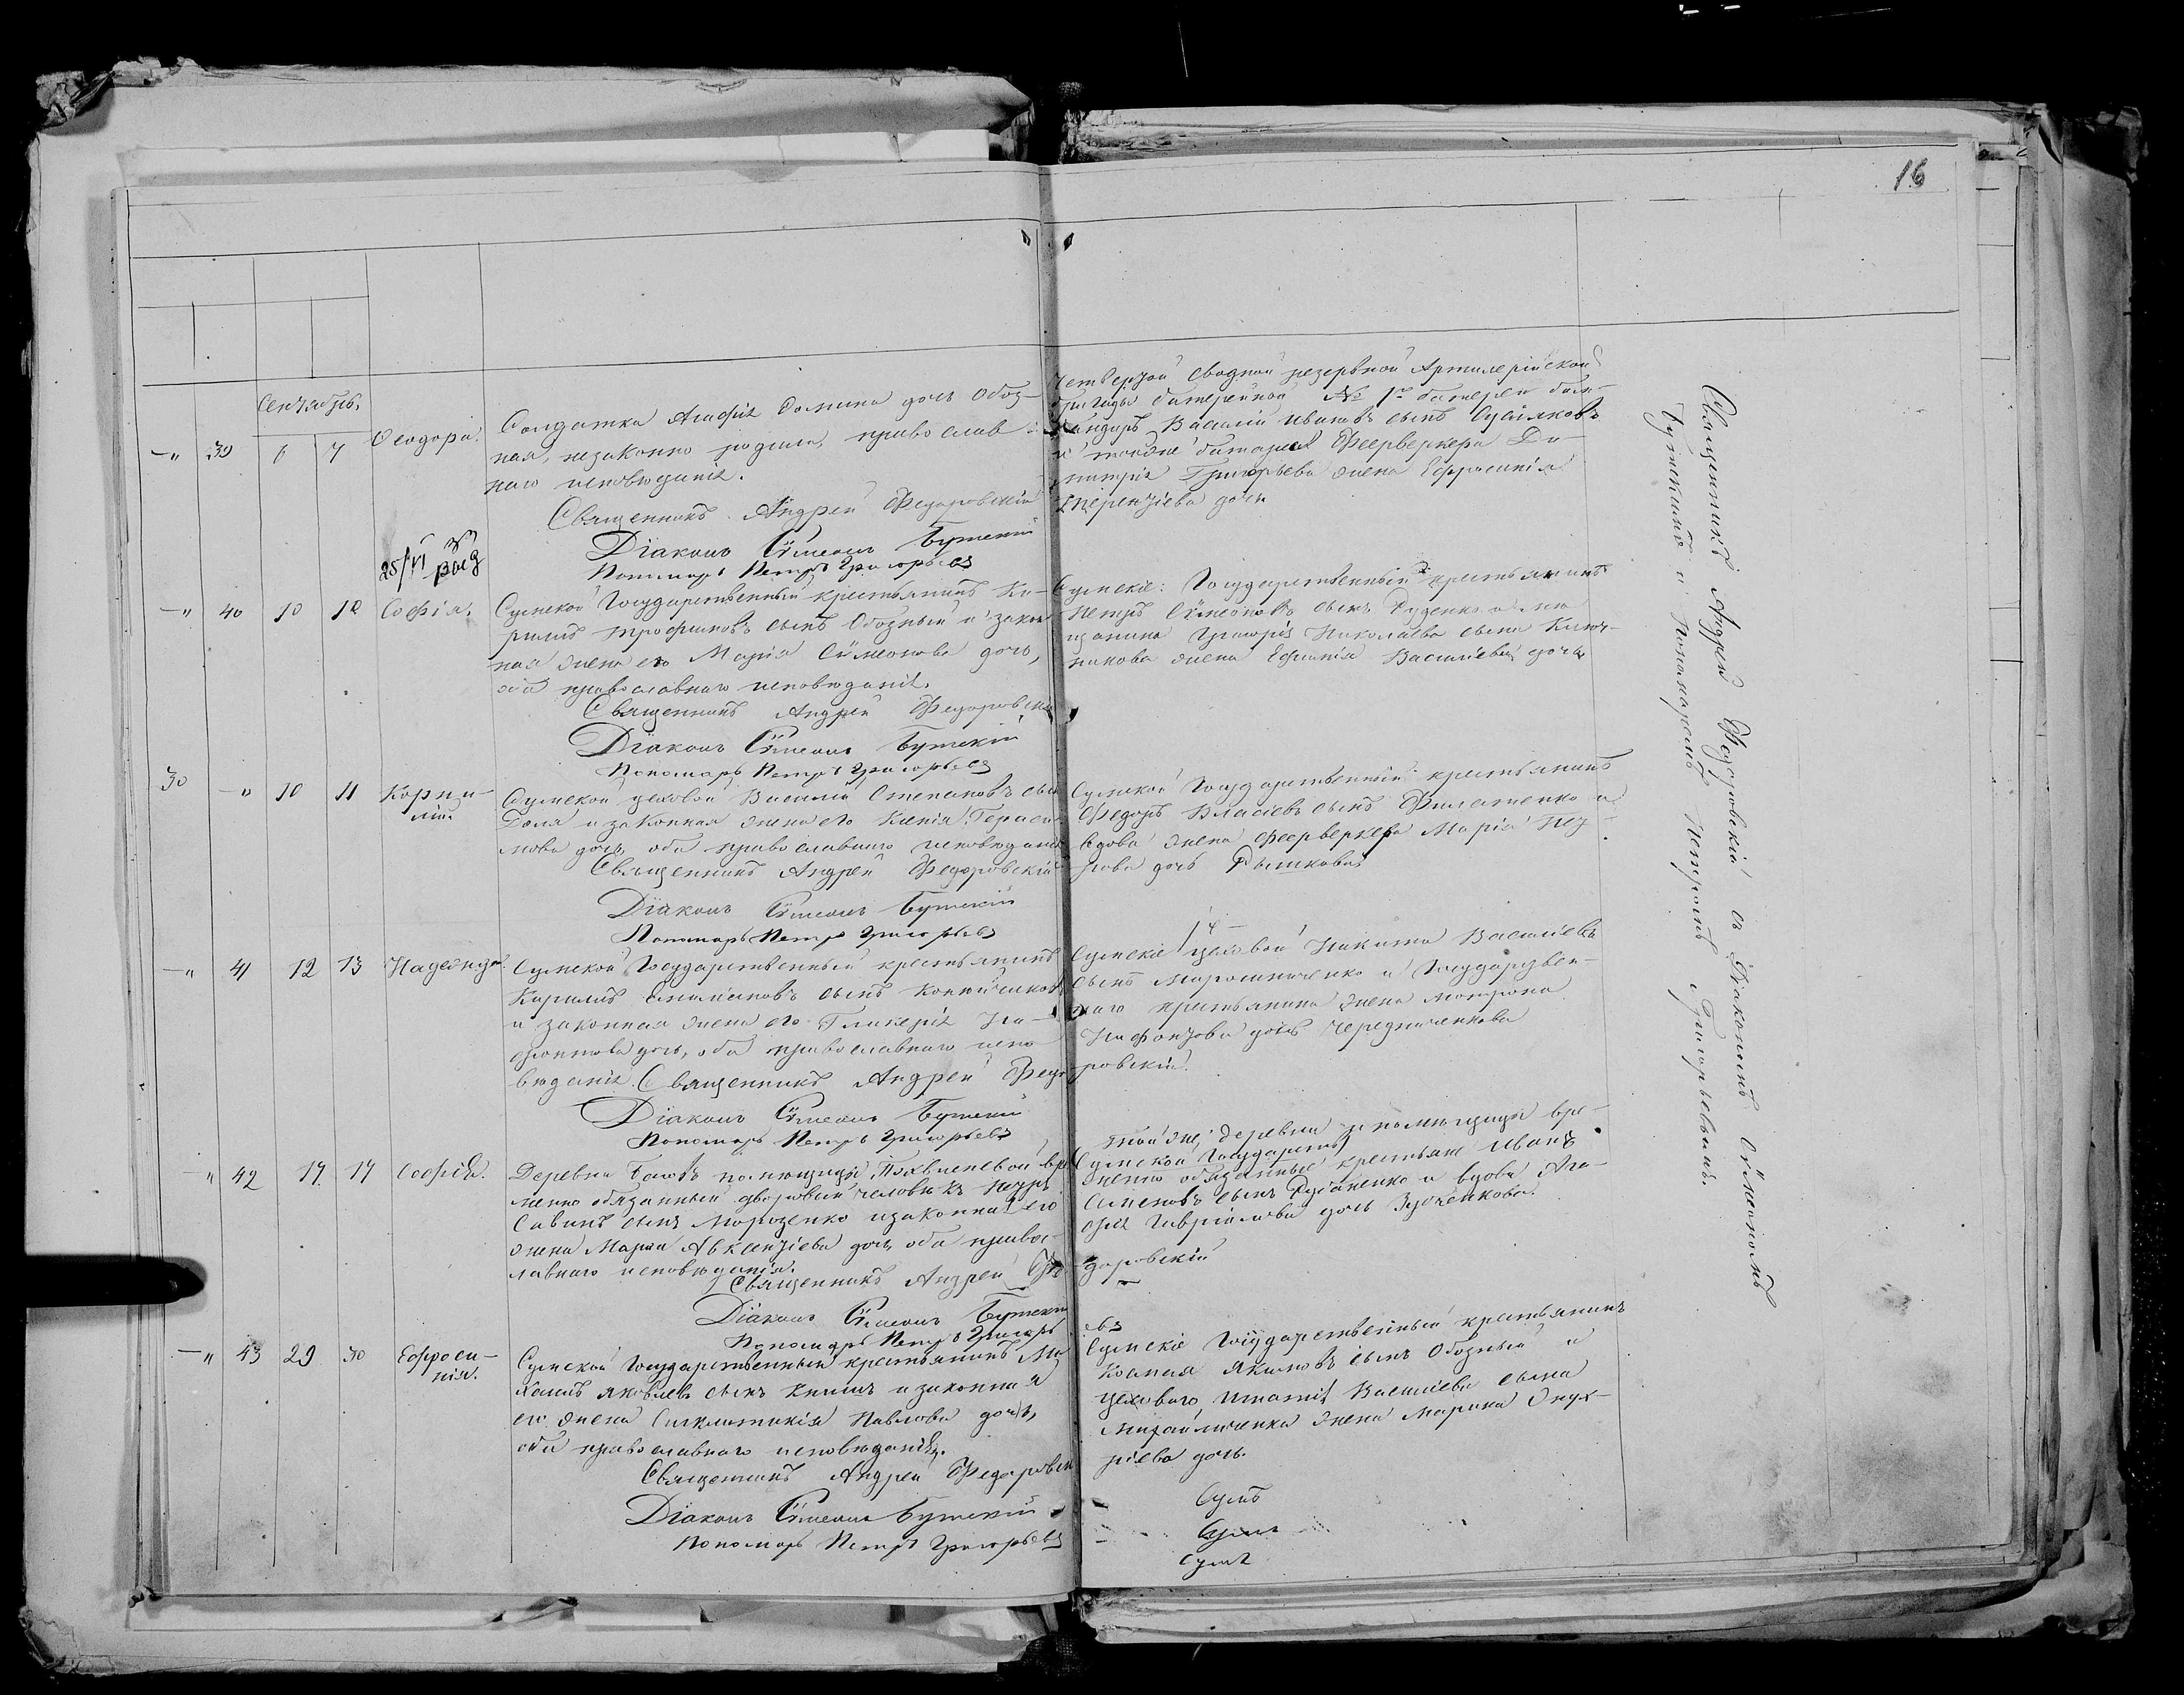 16
Сентябрь.
-„ 39 6 7 Ѳеодора.
Солдатка Агафія Фомина дочь Обоз-
ная, незаконно родила, православ-
наго исповѣданія.
Священникъ Андрей Федоровскій
Діаконъ Сѵмеонъ Бутскій
Пономарь Петръ Григорьевъ
четвертой сводной резервной Артилерійской
бригады батарейной № 1й батареи бом-
бандиръ Василій Ивановъ сынъ
и тойже батареи Феерверкера Ди-
митрія Григорьева жена Ефросинія
Терентіева дочь
25/VI
-„ 40 10 12 Софія.
Сумской Государственный крестьянинъ Ки-
рилъ Трофимовъ сынъ Обозный и закон-
ная жена его Марія Сѵмеонова дочь,
оба православнаго исповѣданія.
Священникъ Андрей Федоровскій
Діаконъ Сѵмеонъ Бутскій
Пономарь Петръ Григорьевъ
Сумскіе: Государственный крестьянинъ
Петръ Сѵмеоновъ сынъ Руденко и мѣ-
щанина Григорія Николаева сына Ключ-
никова жена Ефимія Василіева дочь
30 -„ 10 11 Корни-
лій.
Сумской цеховой Василій Степановъ сынъ
Доля и законная жена его Ксенія Гераси-
мова дочь, оба православнаго исповѣданія
Священникъ Андрей Федоровскій
Діаконъ Сѵмеонъ Бутскій
Пономарь Петръ Григорьевъ
Сумской Государственный крестьянинъ
Федоръ Власіевъ сынъ Филатенко и
вдова жена феерверкера Марія Пет-
рова дочь Рыжкова
-„ 41 12 13 Надежда
Сумской Государственный крестьянинъ
Кирилъ сынъ
и законная жена его Гликерія Ни-
фонтова дочь, оба православнаго испо-
вѣданія. Священникъ Андрей Федо-
ровскій
Діаконъ Сѵмеонъ Бутскій
Пономарь Петръ Григорьевъ
Сумскіе цеховой Никита Василіевъ
сынъ Мирошниченко и Государствен-
наго крестьянина жена Мотрона
Нифонтова дочь Чередниченкова
„ 42 17 17 Софія.
Деревни помѣщицы вре-
менно обязанный дворовый человѣкъ Петръ
Савинъ сынъ Морозенко и законная его
жена Марія Авксентіева дочь, оба правос-
лавнаго исповѣданія.
Священникъ Андрей Фе-
доровскій
Діаконъ Сѵмеонъ Бутскій
Пономарь Петръ Григорь-
евъ
тойже деревни и помѣщицы вре-
Сумской Государств
менно обязанные крестьяне Иванъ
Симеоновъ сынъ Рубаненко и вдова Ага-
фія Гавріилова дочь Зубченкова.
-„ 43 29 30 Ефроси-
нія.
Сумской Государственный крестьянинъ Ми-
хаилъ Яковлевъ сынъ Книшъ и законная
его жена Сигклитикія Павлова дочь,
оба православнаго исповѣданія.
Священникъ Андрей Федоровскій
Діаконъ Сѵмеонъ Бутскій
Пономарь Петръ Григорьевъ
Сумскіе Государственный крестьянинъ
Козьма Якимовъ сынъ Обозный и
цеховаго Игнатія Василіева сына
Михайличенка жена Марина Онуф-
ріева дочь.
Сумъ
Сумъ
Сумъ
Священникъ Андрей Федоровскій съ Діакономъ Сѵмеономъ
Бутскимъ и пономаремъ Петромъ Григорьевымъ.